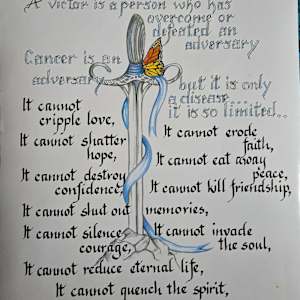 A victor is a person who has
overcome or
defeated an
adversary
Cancer is an
adversary
but it is only
a disease...
it is so limited..
It cannot
cripple love,
It cannot shatter
hope,
It cannot destroy
confidence,
It cannot shut out memories,
It cannot silence
courage,
It cannot erode
faith,
It cannot eat away
peace,
It cannot kill friendship,
It cannot invade
the soul,
It cannot reduce eternal life,
It cannot quench the spirit,